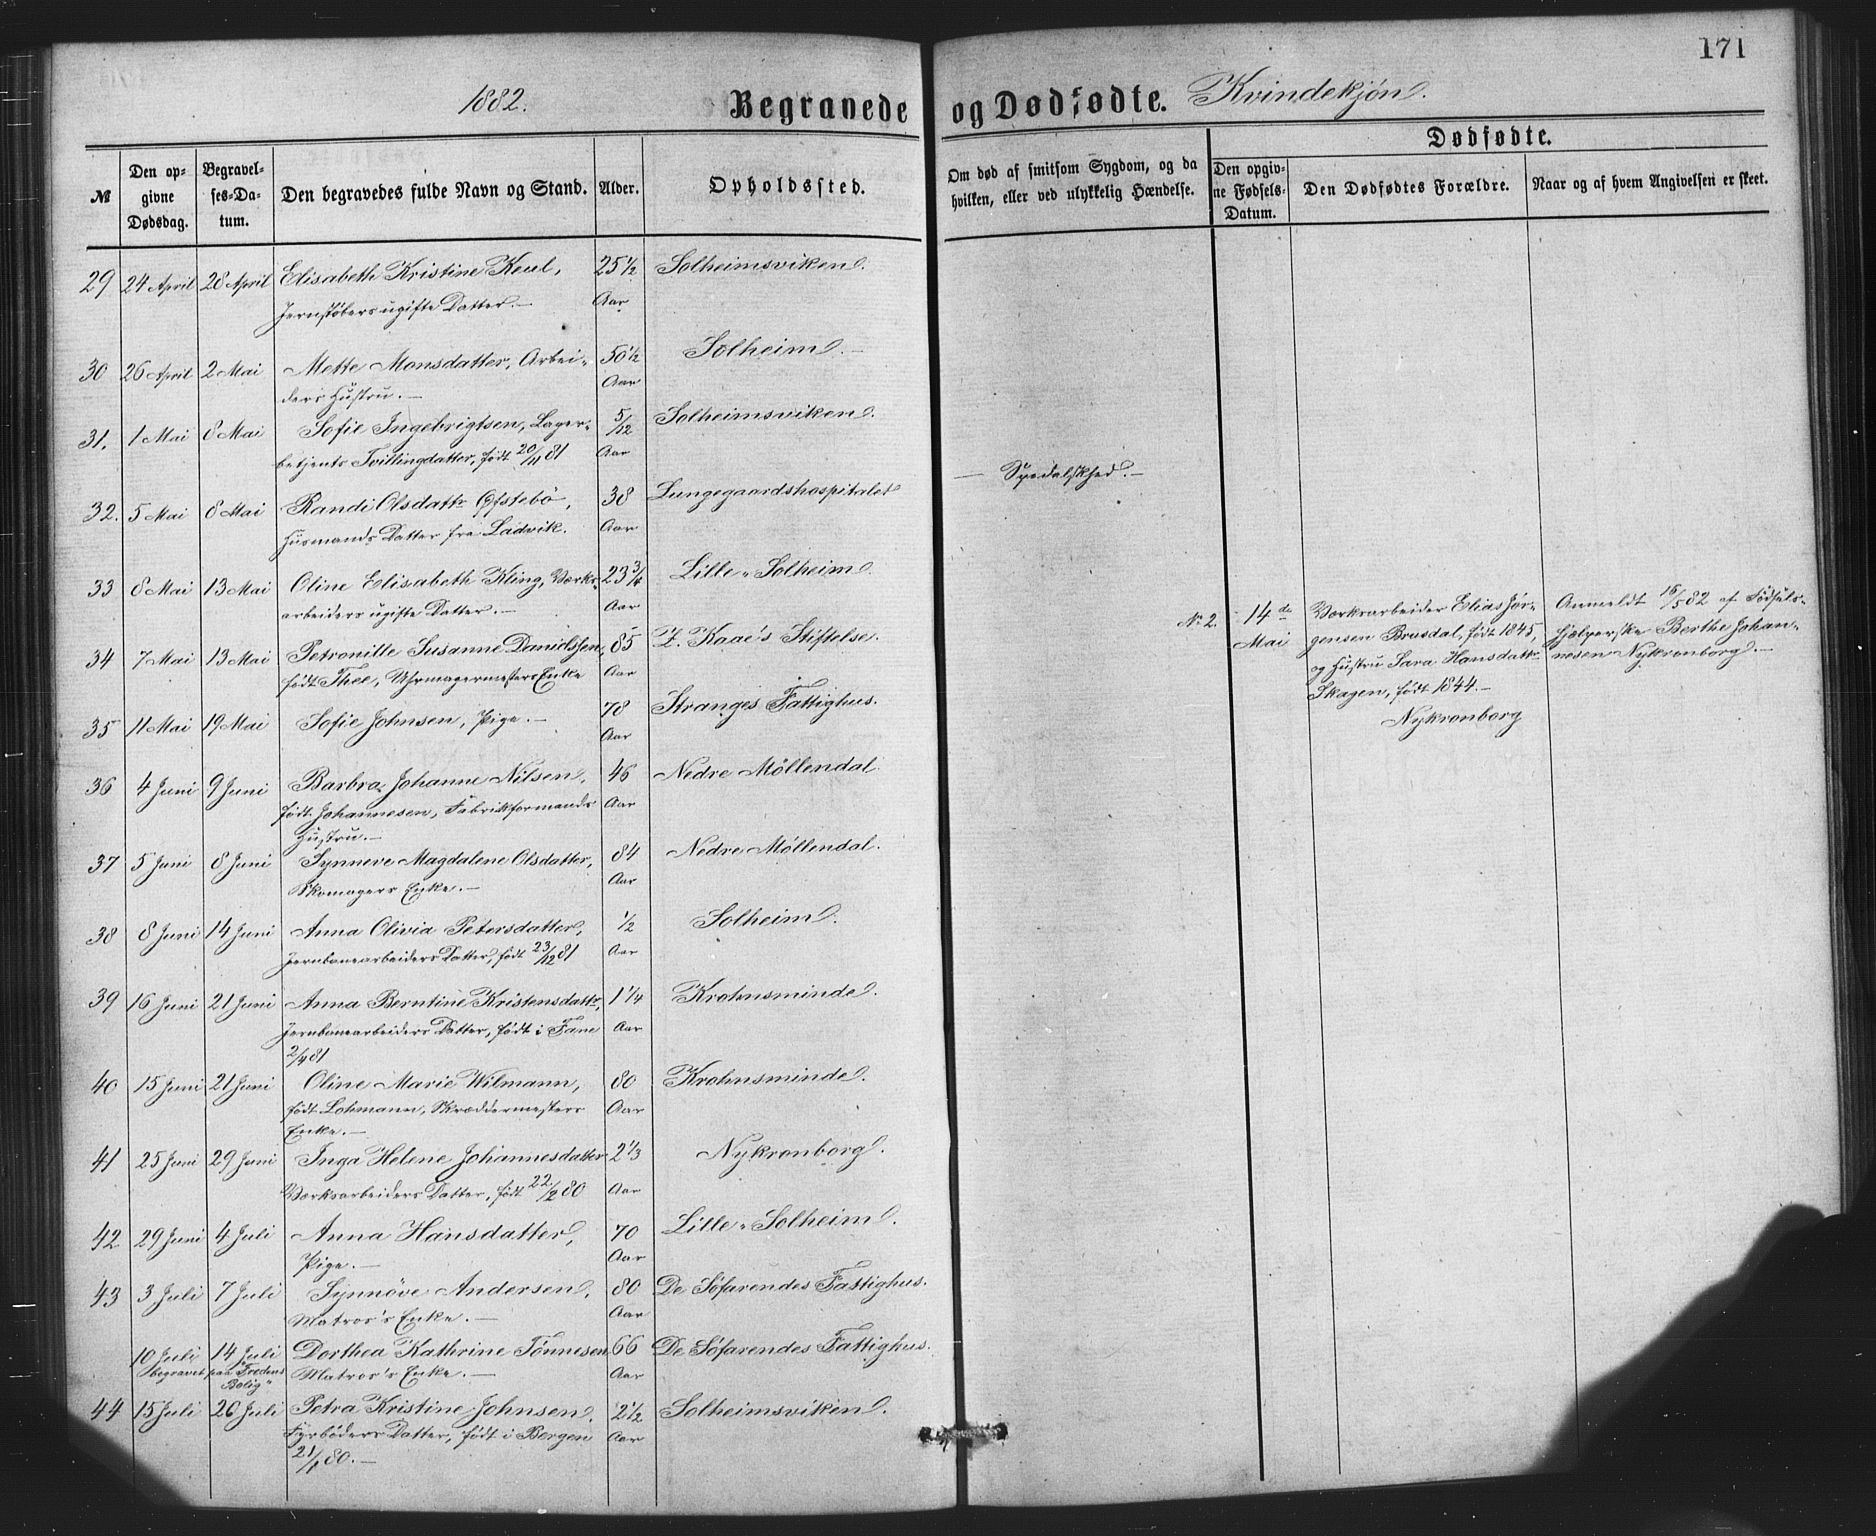 171
1882. Begravede og Dødfødte. Kvindekjøn.
Dødfødte.
№ Den opgivne Dødsdag. Begravelses-Datum. Den begravedes fulde Navn og Stand. Alder. Opholdssted. Om død af smitsom Sygdom, og da hvilken, eller ved ulykkelig Hændelse. Den opgivne Fødsels-Datum. Den Dødfødtes Forældre. Naar og af hvem Angivelsen er skeet.
29 24 April 28 April Elisabeth Kristine Keul, 25½ Solheimsviken.
Jernstøbers ugifte Datter.— Aar
30 26 April 2 Mai Mette Monsdatter, Arbei- 50½ Solheim.—
ders Hustru.— Aar
31. 1 Mai 8 Mai Sofie Ingebrigtsen, Lager- 5/12 Solheimsviken.
betjents Tvillingdatter, født 20/11 81 Aar
— Spedalskhed.—
32. 5 Mai 8 Mai Randi Olsdattr Øfstebö, 38 Lungegaardshospitalet
Husmands Datter fra Ladvik. Aar
33 8 Mai 13 Mai Oline Elisabeth Kling, Værks- 23¾ Lille-Solheim.
arbeiders ugifte Datter.— Aar
34 7 Mai 13 Mai Petronille Susanne Danielssen, 85 Z. Kaae's Stiftelse.
født Thee, Uhrmagermesters Enke Aar
35 11 Mai 19 Mai Sofie Johnsen, Pige.— 78 Stranges Fattighus.
Aar
№ 2. 14de Værksarbeider Elias Jør- Anmeldt 16/5 82 af Fødsels-
Mai gensen Brusdal, født 1845, hjælperske Berthe Johan-
og Hustru Sara Hansdattr nesen Nykronborg.—
Skagen, født 1844.—
Nykronborg
36 4 Juni 9 Juni Barbra Johanne Nilsen, 46 Nedre Möllendal.
født Johannesen, Fabrikformands Aar
Hustru.—
37 5 Juni 8 Juni Synneve Magdalene Olsdatter, 84 Nedre Møllendal.
Skomagers Enke.— Aar
38 8 Juni 14 Juni Anna Olivia Petersdatter, ½ Solheim.
Jernbanearbeiders Datter, født 23/12 81 Aar
39 16 Juni 21 Juni Anna Berntine Kristensdattr, 1¼ Krohnsminde.
Jernbanearbeiders Datter, født i Fane Aar
2/4 81
40 15 Juni 21 Juni Oline Marie Wilmann, 80 Krohnsminde.
født Lohmann, Skræddermesters Aar
Enke.—
41 25 Juni 29 Juni Inga Helene Johannesdatter 2⅓ Nykronborg.
Værksarbeiders Datter, født 22/2 80 Aar
42 29 Juni 4 Juli Anna Hansdatter, 70 Lille-Solheim.
Pige.— Aar
43 3 Juli 7 Juli Synnöve Andersen, 80 De Söfarendes Fattighus.
Matros's Enke.— Aar
10 Juli 14 Juli Dorthea Kathrine Tönnesen 66 De Söfarendes Fattighus.
begravet paa "Fredens Matros's Enke.— Aar
Bolig"
44 15 Juli 20 Juli Petra Kristine Johnsen, 2½ Solheimsviken.
Fyrböders Datter, født i Bergen Aar
21/1 80.—